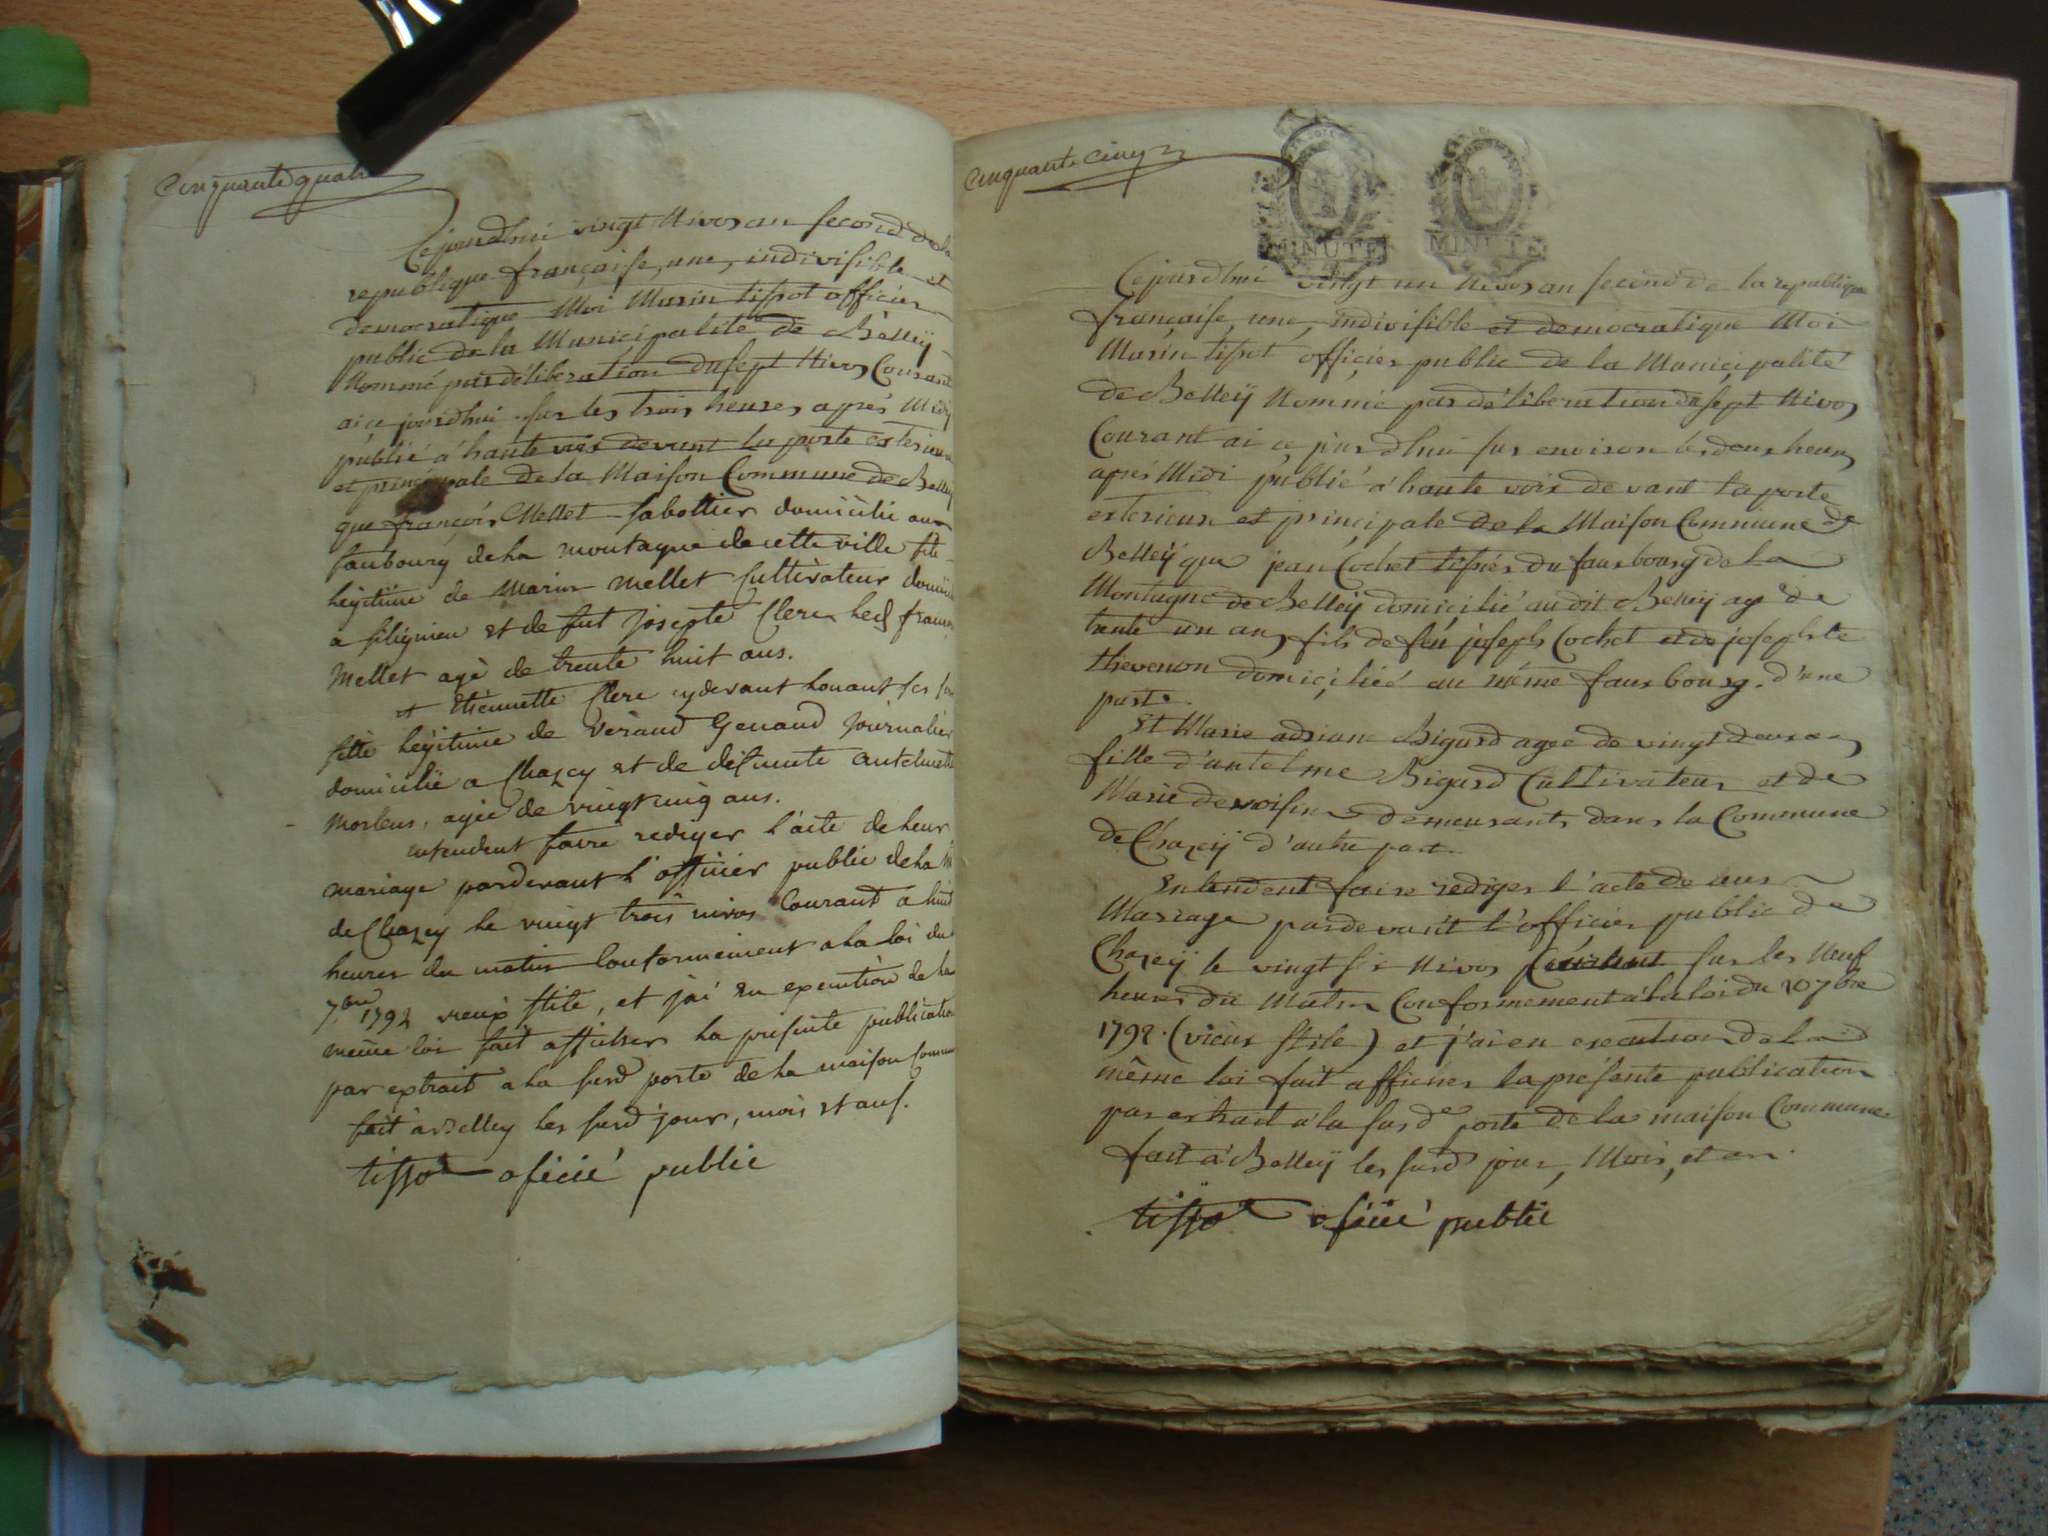 Cinquante quatre
Cejourdhui vingt Nivos an second de la
republique françaisse, une, indivisible et
democratique Moi Marin tissot officier
public de la Municipalité de Belleÿ
Nommé par déliberation du sept Nivos Courant
ai ce jourdhui sur les trois heures après Midy
publié a haute voix devant la porte exterieure
et principale de la Maison Commune de Belleÿ
que françois Mellet sabottier domicilié au
faubourg de la montagne de cette ville fils
legitime de Marin Mellet Cultivateur domicilié
a et de fut Josepte Clerc françois
Mellet agé de trente huit ans.
et Etiennette Clerc
fille legitime de Véraud Genaud Journalier
domicilié a Chazey et de defunte antelmette
agée de vingt cinq ans.
entendent faire rediger l'acte de leur
mariage pardevant l'officier public de la
de Chazey le vingt trois nivos Courant a huit
heures du matin Conformement a la loi du
7bre 1792 vieux stile, et j'ai en execution de la
meme loi fait afficher la presente publication
par extrait a la susd porte de la maison Commune
fait a Belley les susd jour, mois et ans.
tissot oficié public
Cinquante Cinq
MINUTE MINUTE
Cejourdhui vingt un Nivos an second de la republique
françaisse, une, indivisible et democratique Moi
Marin tissot officier public de la Municipalité
de Belleÿ Nommé par déliberation du sept Nivos
Courant ai ce jourdhui sur environ les deux heures
après Midi publié a haute voix devant la porte
exterieure et principale de la Maison Commune de
Belleÿ que jean Cochet tissier du faux bourg de la
Montagne de Belleÿ domicilié au dit Belleÿ agé de
trente un ans fils de feu joseph Cochet et de josephte
thevenon domicilié au même faux bourg. d'une
part.
Et Marie adriane Bigard agée de vingt deux ans
fille d'antelme Bigard Cultivateur et de
Marie devoisins demeurants dans la Commune
de Chazeÿ d'autre part.
Entendent faire rediger l'acte de leur
Mariage pardevant l'officier public de
Chazeÿ le vingt six Nivos Courant sur les Neuf
heures du Matin Conformement a la loi du 20 7bre
1792. (vieux stile) et j'ai en execution de la
même loi fait afficher la présente publication
par extrait a la susde porte de la maison Commune
fait a Belleÿ les susd jour, Mois, et an.
tissot oficié public